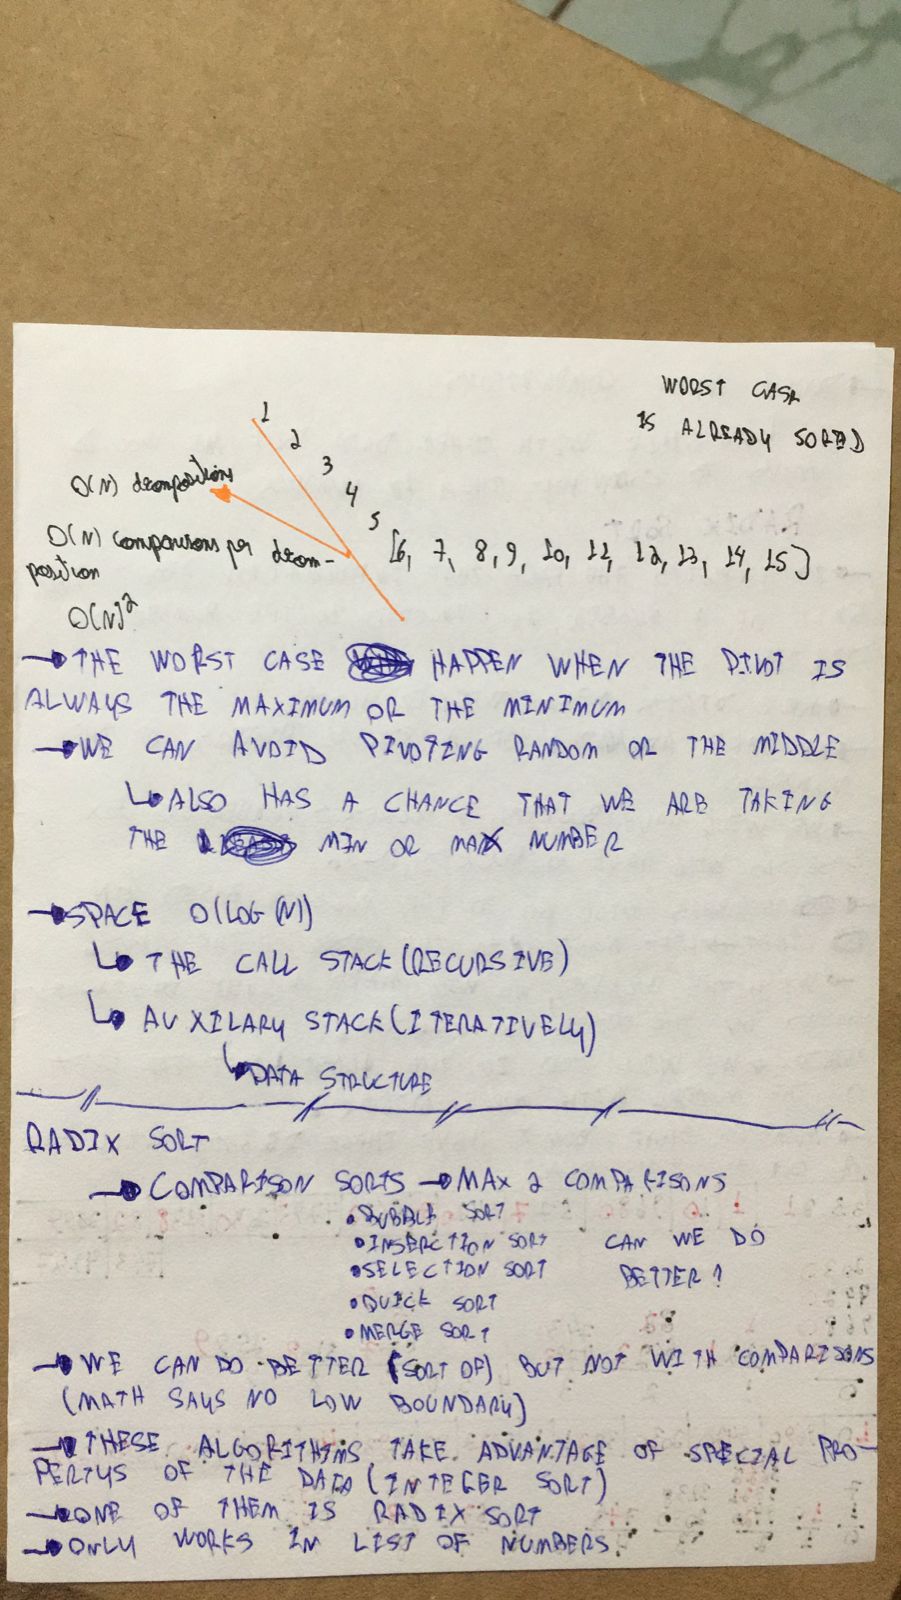 WORST CASE
IS ALREADY SORTED
1
2
3
4
5
[6, 7, 8, 9, 10, 11, 12, 13, 14, 15]
O(N) decompositions
O(N) comparisons per decom-
position
O(N)²
→ THE WORST CASE HAPPEN WHEN THE PIVOT IS
ALWAYS THE MAXIMUM OR THE MINIMUM
→ WE CAN AVOID PIVOTING RANDOM OR THE MIDDLE
↳ ALSO HAS A CHANCE THAT WE ARE TAKING
THE MIN OR MAX NUMBER
→ SPACE O(LOG(N))
↳ THE CALL STACK (RECURSIVE)
↳ AUXILARY STACK (ITERATIVELY)
↳ DATA STRUCTURE
RADIX SORT
→ COMPARISON SORTS → MAX 2 COMPARISONS
• BUBBLE SORT
• INSERCTION SORT CAN WE DO
• SELECTION SORT BETTER?
• QUICK SORT
• MERGE SORT
→ WE CAN DO BETTER (SORT OF) BUT NOT WITH COMPARISONS
(MATH SAYS NO LOW BOUNDARY)
→ THESE ALGORITHMS TAKE ADVANTAGE OF SPECIAL PRO-
PERTYS OF THE DATA (INTEGER SORT)
→ ONE OF THEM IS RADIX SORT
→ ONLY WORKS IN LIST OF NUMBERS